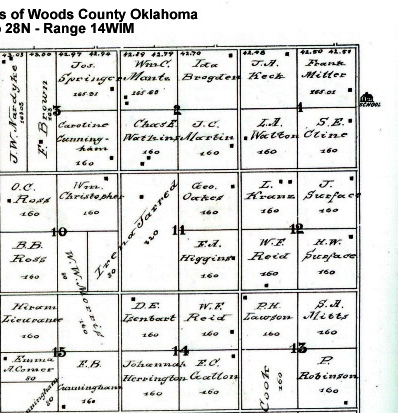 s of Woods County Oklahoma
28N - Range 14WIM
42.97 42.94
42.89 42.79
42.70
42.48
J.W. Nardyke
F. Brown
Jos. Springer
165.81
Wm. C. Mantz
165.68
Ida Brogden
J.A. Keck
Frank Miller
165.01
SCHOOL
3
2
1
Caroline Cunningham
160
Chas E. Watkins
160
J.C. Martin
160
L.A. Walton
160
S.E. Cline
160
O.C. Ross
160
Wm. Christopher
160
Irena Jarred
80
320
Geo. Oakes
160
L. Kranz
160
J. Surface
160
10
11
12
B.B. Ross
160
W.W. Morris
80
F.A. Higgins
160
W.F. Reid
160
H.W. Surface
160
Hiram Lieurance
160
D.E. Isenbart
160
W.F. Reid
160
P.H. Lawson
160
S.A. Mitts
160
15
14
13
Emma A. Comer
80
F.B. Cunningham
160
Johannah Herrington
160
E.C. Gatlon
160
Cook
160
P. Robinson
160
ningham
80